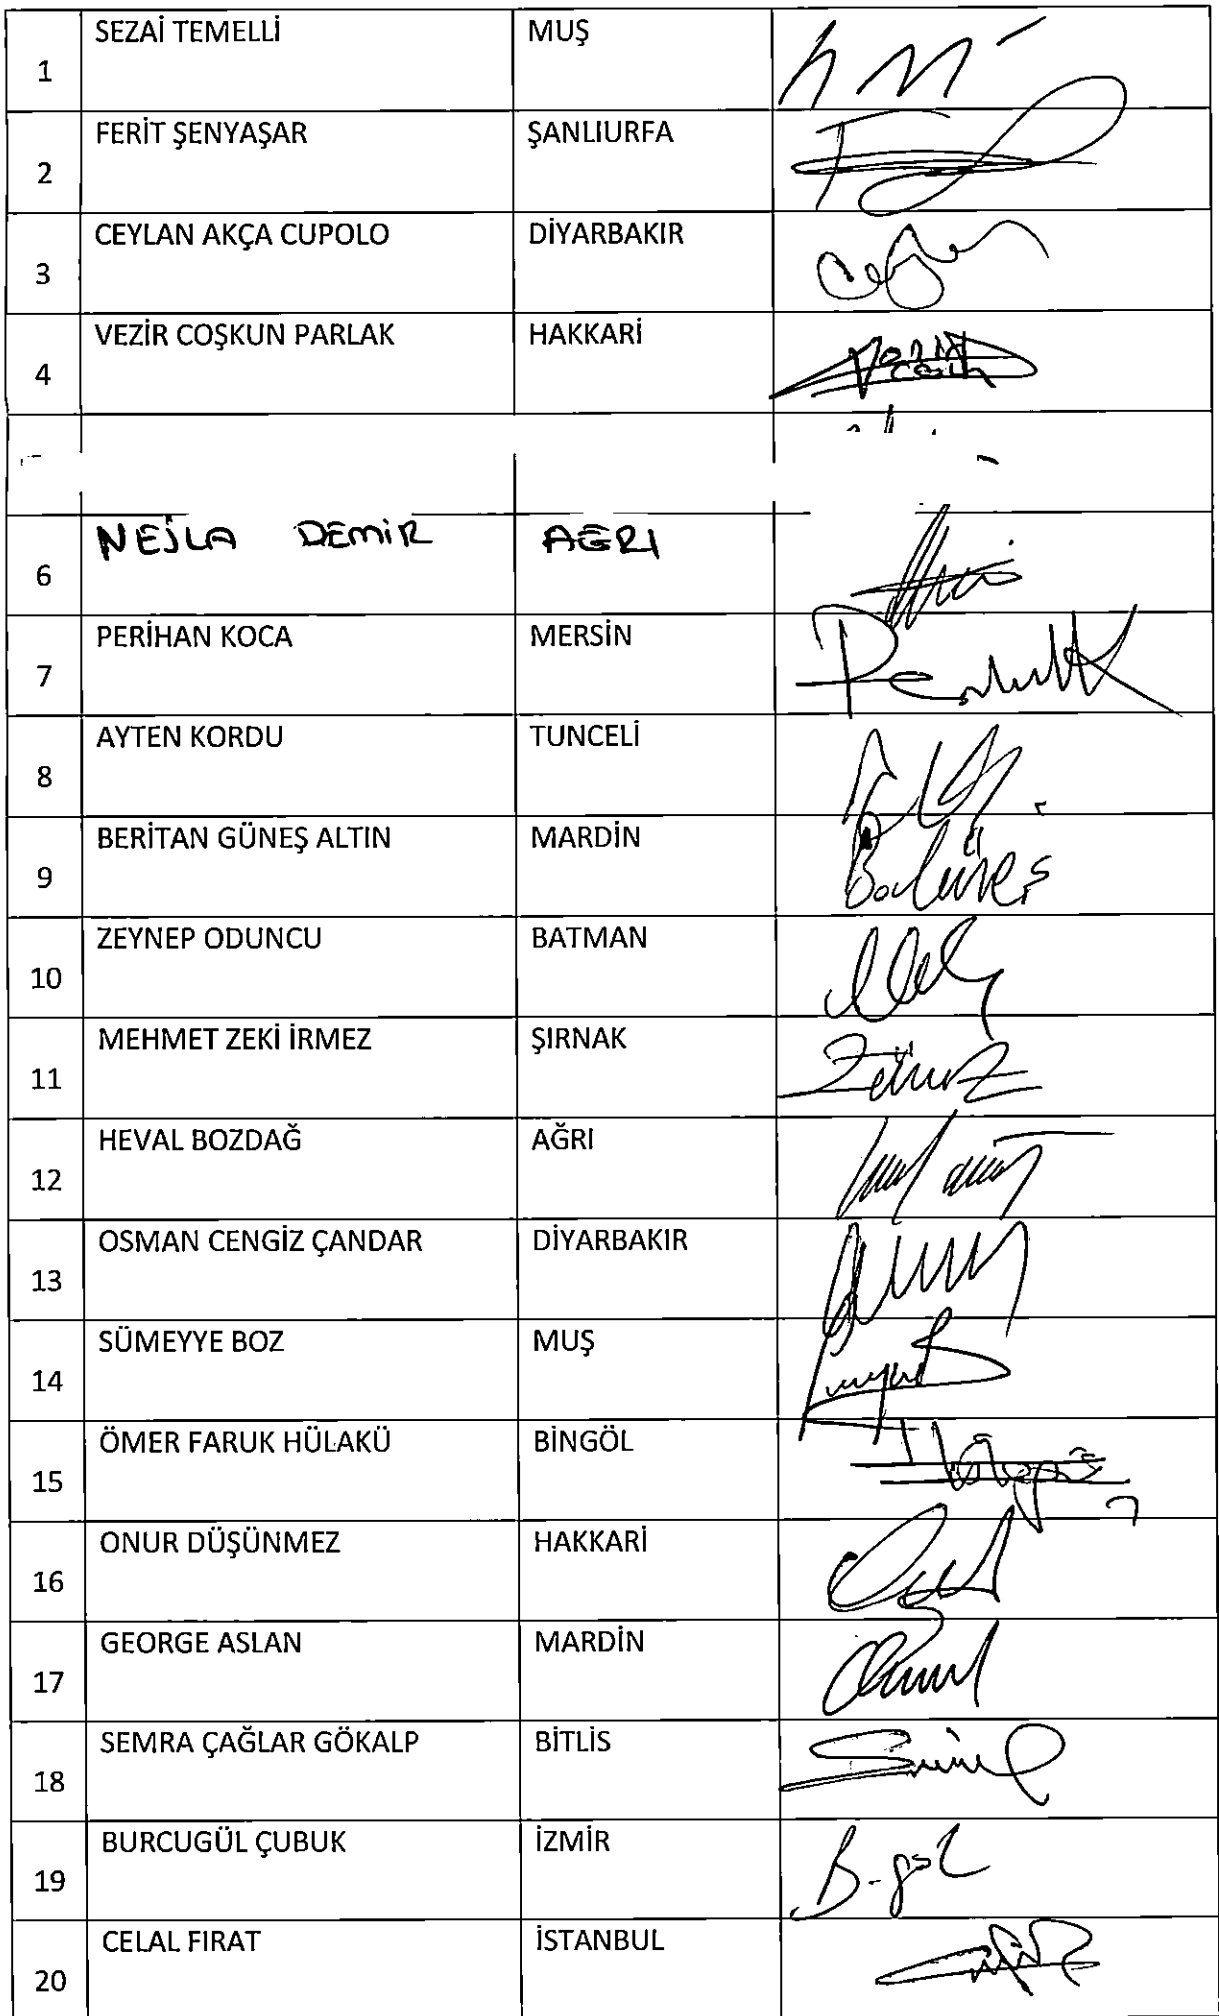 1 SEZAİ TEMELLİ MUŞ
2 FERİT ŞENYAŞAR ŞANLIURFA
3 CEYLAN AKÇA CUPOLO DİYARBAKIR
4 VEZİR COŞKUN PARLAK HAKKARİ
6 NEJLA DEMİR AĞRI
7 PERİHAN KOCA MERSİN
8 AYTEN KORDU TUNCELİ
9 BERİTAN GÜNEŞ ALTIN MARDİN
10 ZEYNEP ODUNCU BATMAN
11 MEHMET ZEKİ İRMEZ ŞIRNAK
12 HEVAL BOZDAĞ AĞRI
13 OSMAN CENGİZ ÇANDAR DİYARBAKIR
14 SÜMEYYE BOZ MUŞ
15 ÖMER FARUK HÜLAKÜ BİNGÖL
16 ONUR DÜŞÜNMEZ HAKKARİ
17 GEORGE ASLAN MARDİN
18 SEMRA ÇAĞLAR GÖKALP BİTLİS
19 BURCUGÜL ÇUBUK İZMİR
20 CELAL FIRAT İSTANBUL